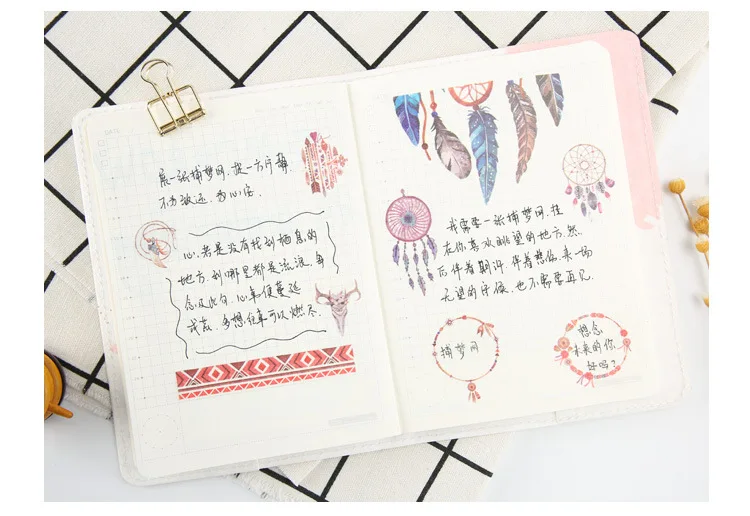 展一张捕梦网,捉一方宁静
不为波逐,为心安
心,若是没有找到栖息的
地方,到哪里都是流浪,每
念及此句,心草便蔓延
成荒,多想往事可以燃尽.
我需要一张捕梦网,挂
在你喜欢眺望的地方.然
后伴着期许,伴着想你,来一场
无望的守候,也不需要再见.
捕梦网
想念
未来的你.
好吗?